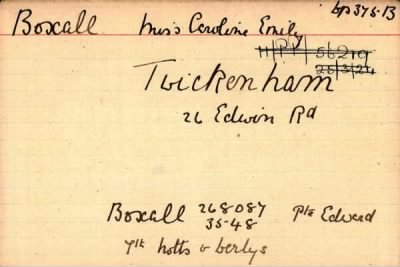 6/p375.B
Boxall Miss Caroline Emily
11/PP/5629
25/3/24
Twickenham
26 Edwin Rd
Boxall 268087 Pte Edward
35-48
7th Notts & Derbys